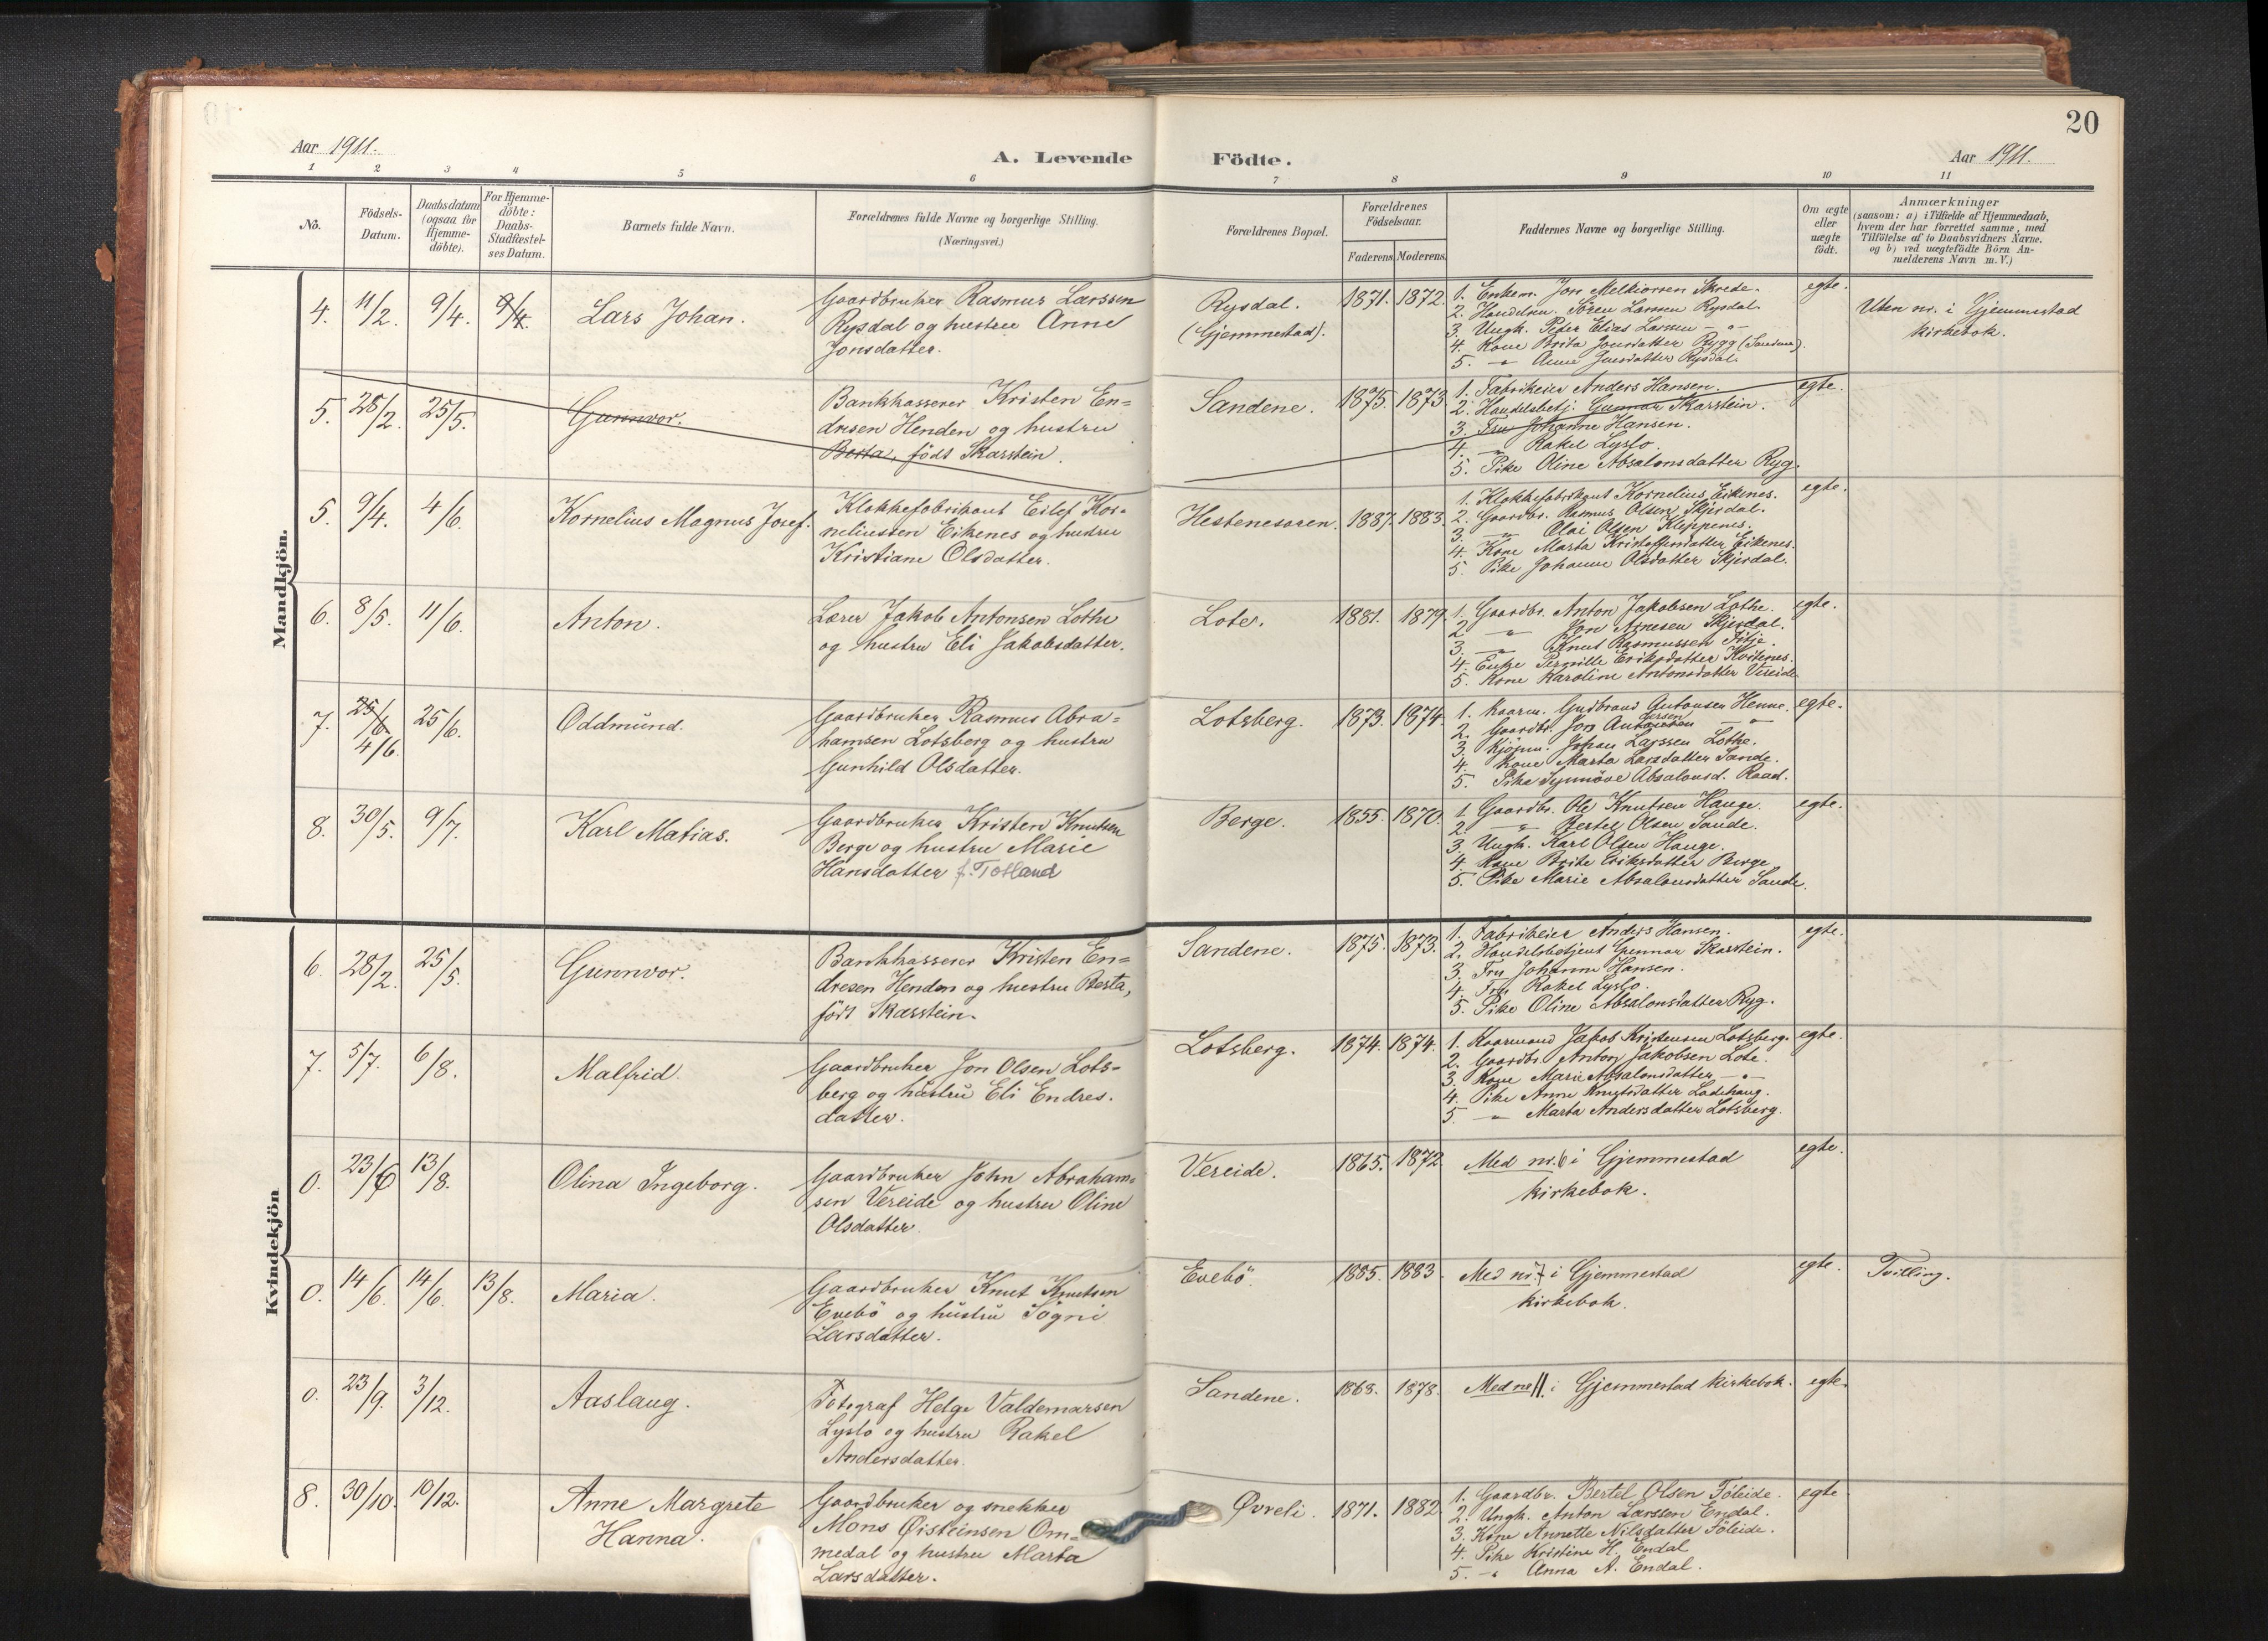 20
Aar 1911.
A. Levende Födte.
Aar 1911.
1 2 3 4 5 6 7 8 9 10 11
No.
Födsels-
Datum.
Daabsdatum
(ogsaa for
Hjemme-
döbte).
For Hjemme-
döbte:
Daabs-
Stadfæstel-
ses Datum.
Barnets fulde Navn.
Forældrenes fulde Navne og borgerlige Stilling.
(Næringsvei.)
Forældrenes Bopæl.
Forældrenes
Födselsaar.
Faderens Moderens
Faddernes Navne og borgerlige Stilling.
Om ægte
eller
uægte
födt.
Anmærkninger
(saasom: a) i Tilfælde af Hjemmedaab,
hvem der har forrettet samme, med
Tilföielse af to Daabsvidners Navne.
og b) ved uægtefödte Börn An-
melderens Navn m. V.)
Mandkjön.
4. 11/2. 9/4. 9/4. Lars Johan.
Gaardbruker Rasmus Larssen
Rysdal og hustru Anne
Jonsdatter.
Rysdal.
(Gjemmestad).
1871. 1872.
1. Enkem. Jon Melkiorsen Skrede.
2. Handelsm. Sören Larssen Rysdal.
3. Ungk. Peter Elias Larssen - " -
4. Kone Brita Jonsdatter Rygg (Sandene).
5. - " - Anne Jonsdatter Rysdal.
egte.
Uten nr. i Gjemmestad
kirkebok.
5. 28/2. 25/5. Gunnvor.
Bankkasserer Kristen En=
dresen Henden og hustru
Berta, födt Skarstein.
Sandene.
1875. 1873.
1. Fabrikeier Anders Hansen.
2. Handelsbetj. Gunnar Skarstein.
3. Fru Johanne Hansen.
4. - " - Rakel Lyslo.
5. Pike Oline Absalonsdatter Ryg.
egte.
5. 9/4. 4/6. Kornelius Magnus Josef.
Klokkefabrikant Eilef Kor=
neliussen Eikenes og hustru
Kristiane Olsdatter.
Hestenesören.
1887. 1883.
1. Klokkefabrikant Kornelius Eikenes.
2. Gaardbr. Rasmus Olsen Skjerdal.
3. - " - Olai Olsen Kleppenes.
4. Kone Marta Kristoffersdatter Eikenes.
5. Pike Johanne Olsdatter Skjerdal.
egte.
6. 8/5. 11/6. Anton.
Lærer Jakob Antonsen Lothe
og hustru Eli Jakobsdatter.
Lote.
1881. 1879.
1. Gaardbr. Anton Jakobsen Lothe.
2 - " - Jon Arnesen Skjerdal.
3. - " - Knut Rasmussen Fitje.
4. Enke Pernille Eriksdatter Hvitenes.
5. Kone Karoline Antonsdatter Vereide
egte.
7. 25/6. 4/6. 25/6. Oddmund.
Gaardbruker Rasmus Abra=
hamsen Lotsberg og hustru
Gunhild Olsdatter.
Lotsberg.
1873. 1874.
1. Kaarm. Gudbrand Antonsen Henne.
2. Gaardbr. Jon - " -
3. Kjöpm. Johan Larssen Lothe.
4. Kone Marta Larsdatter Sande.
5. Pike Synnöve Absalonsd. Raad.
egte.
8. 30/5. 9/7. Karl Matias.
Gaardbruker Kristen Knutsen
Berge og hustru Marie
Hansdatter f. Totland
Berge.
1855. 1870.
1. Gaardbr. Ole Knutsen Hauge.
2. - " - Bertel Olsen Sande.
3. Ungk. Karl Olsen Hauge.
4. Kone Brite Eriksdatter Berge
5. Pike Marie Absalonsdatter Sande.
egte.
Kvindekjön
6. 28/2. 25/5. Gunnvor.
Bankkasserer Kristen En=
dresen Henden og hustru Berta,
födt Skarstein.
Sandene.
1875. 1873.
1. Fabrikeier Anders Hansen.
2. Handelsbetjent Gunnar Skarstein.
3. Fru Johanne Hansen.
4. Fru Rakel Lyslo.
5. Pike Oline Absalonsdatter Ryg.
egte.
7. 5/7. 6/8. Malfrid.
Gaardbruker Jon Olsen Lots=
berg og hustru Eli Endres.
datter.
Lotsberg.
1874. 1874.
1. Kaarmand Jakob Kristensen Lotsberg.
2. Gaardbr. Anton Jakobsen Lote.
3. Kone Marie Absalonsdatter - " -
4. Pike Anne Knutsdatter Ladehaug.
5 - " - Marta Andersdatter Lotsberg.
egte.
0. 23/6 13/8. Olina Ingeborg.
Gaardbruker John Abraham=
sen Vereide og hustru Oline
Olsdatter.
Vereide.
1865. 1872.
Med nr. 6 i Gjemmestad
kirkebok.
egte.
0. 14/6. 14/6. 13/8. Maria.
Gaardbruker Knut Knutsen
Evebö og hustru Sögni
Larsdatter.
Evebö.
1885. 1883.
Med nr. 7 i Gjemmestad
kirkebok.
egte.
Tvilling.
0. 23/9. 3/12. Aaslaug.
Fotograf Helge Valdemarsen
Lyslo og hustru Rakel
Andersdatter.
Sandene.
1868. 1878.
Med nr 11. i Gjemmestad kirkebok.
egte.
8. 30/10. 10/12. Anne Margrete
Hanna.
Gaardbruker og snekker
Mons Øisteinsen Om=
medal og hustru Marta
Larsdatter.
Øvreli.
1871. 1882.
1. Gaardbr. Bertel Olsen Töleide.
2. Ungk. Anton Larssen Endal.
3. Kone Annette Nilsdatter Föleide.
4. Pike Kristine H. Endal
5. - " Anna A. Endal.
egte